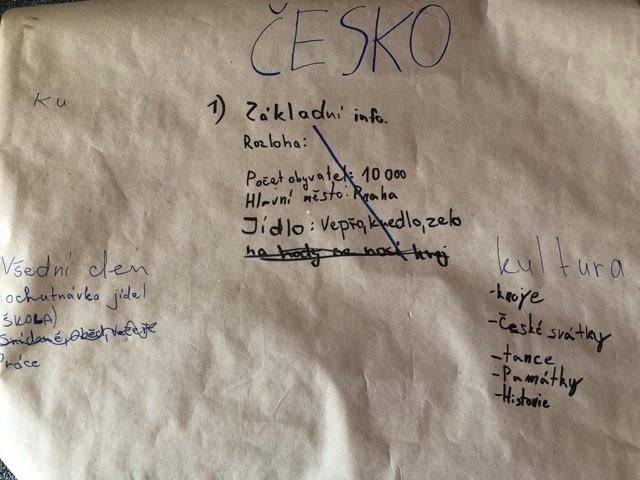 ČESKO
Ku
1) Základní info.
Rozloha:
Počet obyvatel: 10 000
Hlavní město: Praha
Jídlo: Vepřo, knedlo, zelo
na hody se nosí kroj
Všední den
ochutnávka jídel
ŠKOLA)
Snídaně, Oběd, večeře
Práce
kultura
-kroje
-České svátky
-tance
-Památky
-Historie